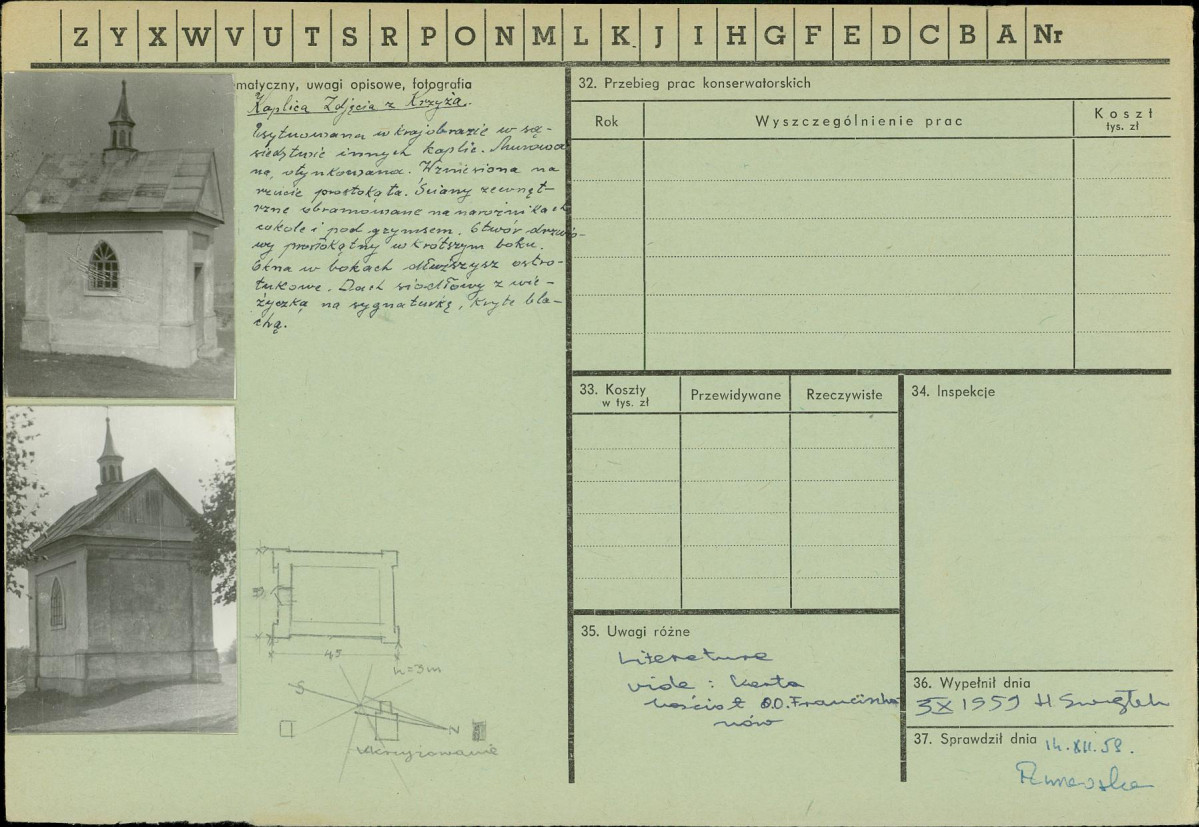 Z Y X W V U T S R P O N M L K J I H G F E D C B A Nr
matyczny, uwagi opisowe, fotografia
Kaplica Zdjęcia z Krzyża.
Usytuowana w krajobrazie w są-
siedztwie innych kaplic. Murowa
na, otynkowana. Wzniesiona na
rzucie prostokąta. Ściany zewnęt-
rzne obramowane na narożnikach
cokole i pod gzymsem. Otwór drzwio-
wy prostokątny w krótszym boku.
Okna w bokach dłuższysz ostro-
łukowe. Dach siodłowy z wie-
życzką na sygnaturkę, kryte bla-
chą.
45
h=3m
S
N
Ukrzyżowanie
32. Przebieg prac konserwatorskich
Rok
Wyszczególnienie prac
Koszt
tys. zł
33. Koszty
w tys. zł
Przewidywane
Rzeczywiste
34. Inspekcje
35. Uwagi różne
Literatura
vide : karta
kościoł O.O. Franciszka
nów
36. Wypełnił dnia
3 X 1959 H Swiątek
37. Sprawdził dnia
14.XII.59.